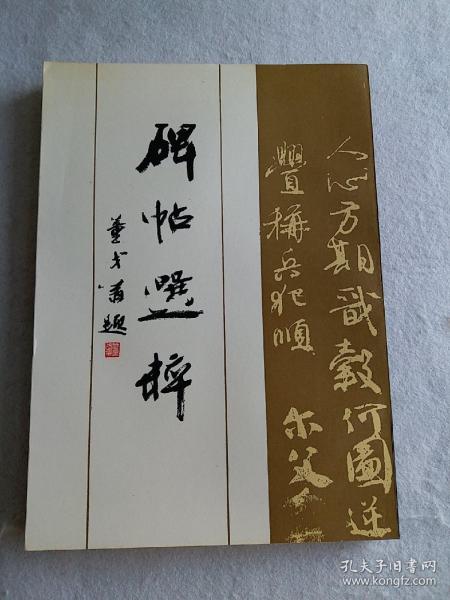 人心方期戩穀何圖逆
釁稱兵犯順
尔父
碑帖選粹
董戈翁題
孔夫子旧书网
www.kongfz.com